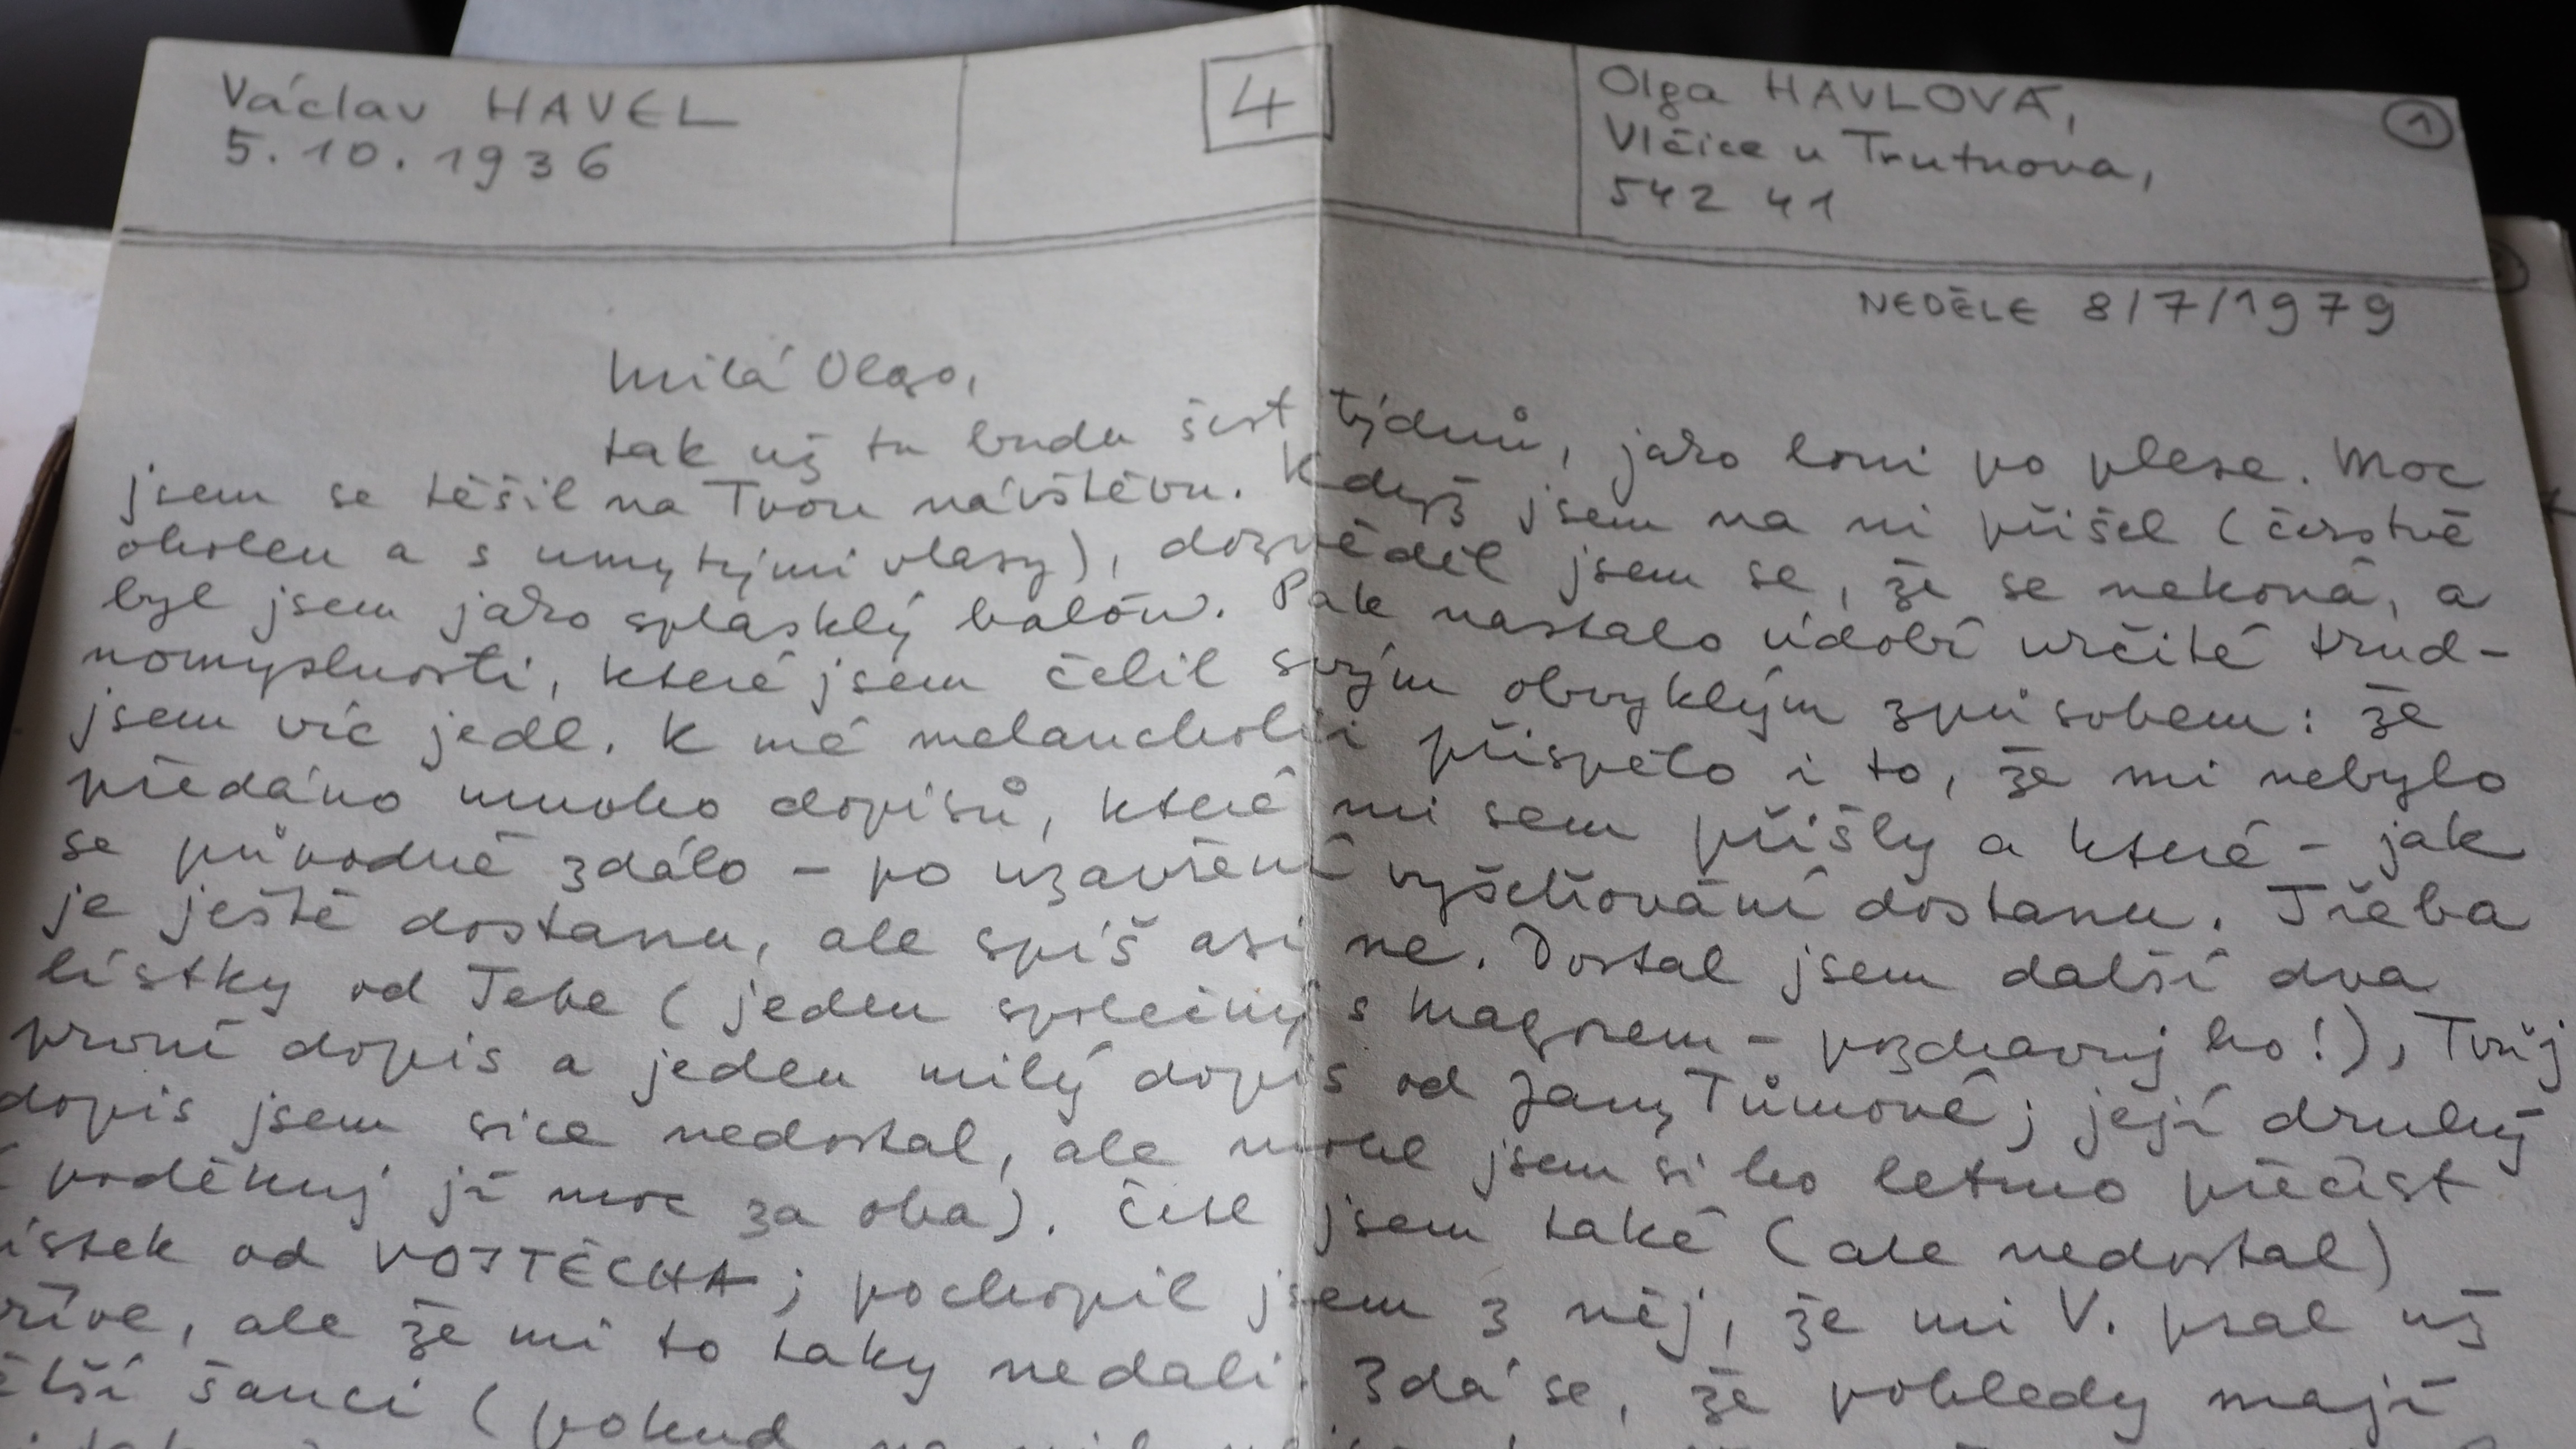 Václav HAVEL
5.10.1936
4
Olga HAVLOVÁ,
Vlčice u Trutnova,
542 41
1
NEDĚLE 8/7/1979
Milá Olgo,
tak už tu budu šest týdnů, jako loni po plese. Moc
jsem se těšil na Tvou návštěvu. Když jsem na ni přišel (čerstvě
oholen a s umytými vlasy), dozvěděl jsem se, že se nekoná, a
byl jsem jako splasklý balón. Pak nastalo údobí určité trud-
nomyslnosti, které jsem čelil svým obvyklým způsobem: že
jsem víc jedl. K mé melancholii přispělo i to, že mi nebylo
předáno mnoho dopisů, které mi sem přišly a které - jak
se původně zdálo - po uzavření vyšetřování dostanu. Třeba
je ještě dostanu, ale spíš asi ne. Dostal jsem další dva
lístky od Tebe (jeden společný s Magorem - pozdravuj ho!), Tvůj
první dopis a jeden milý dopis od Jany Tůmové; její druhý
dopis jsem sice nedostal, ale mohl jsem si ho letmo přečíst
(poděkuj jí moc za oba). Četl jsem také (ale nedostal)
ístek od VOJTĚCHA; pochopil jsem z něj, že mi V. psal už
říve, ale že mi to taky nedali. Zdá se, že pohledy mají
ětší šanci (pokud